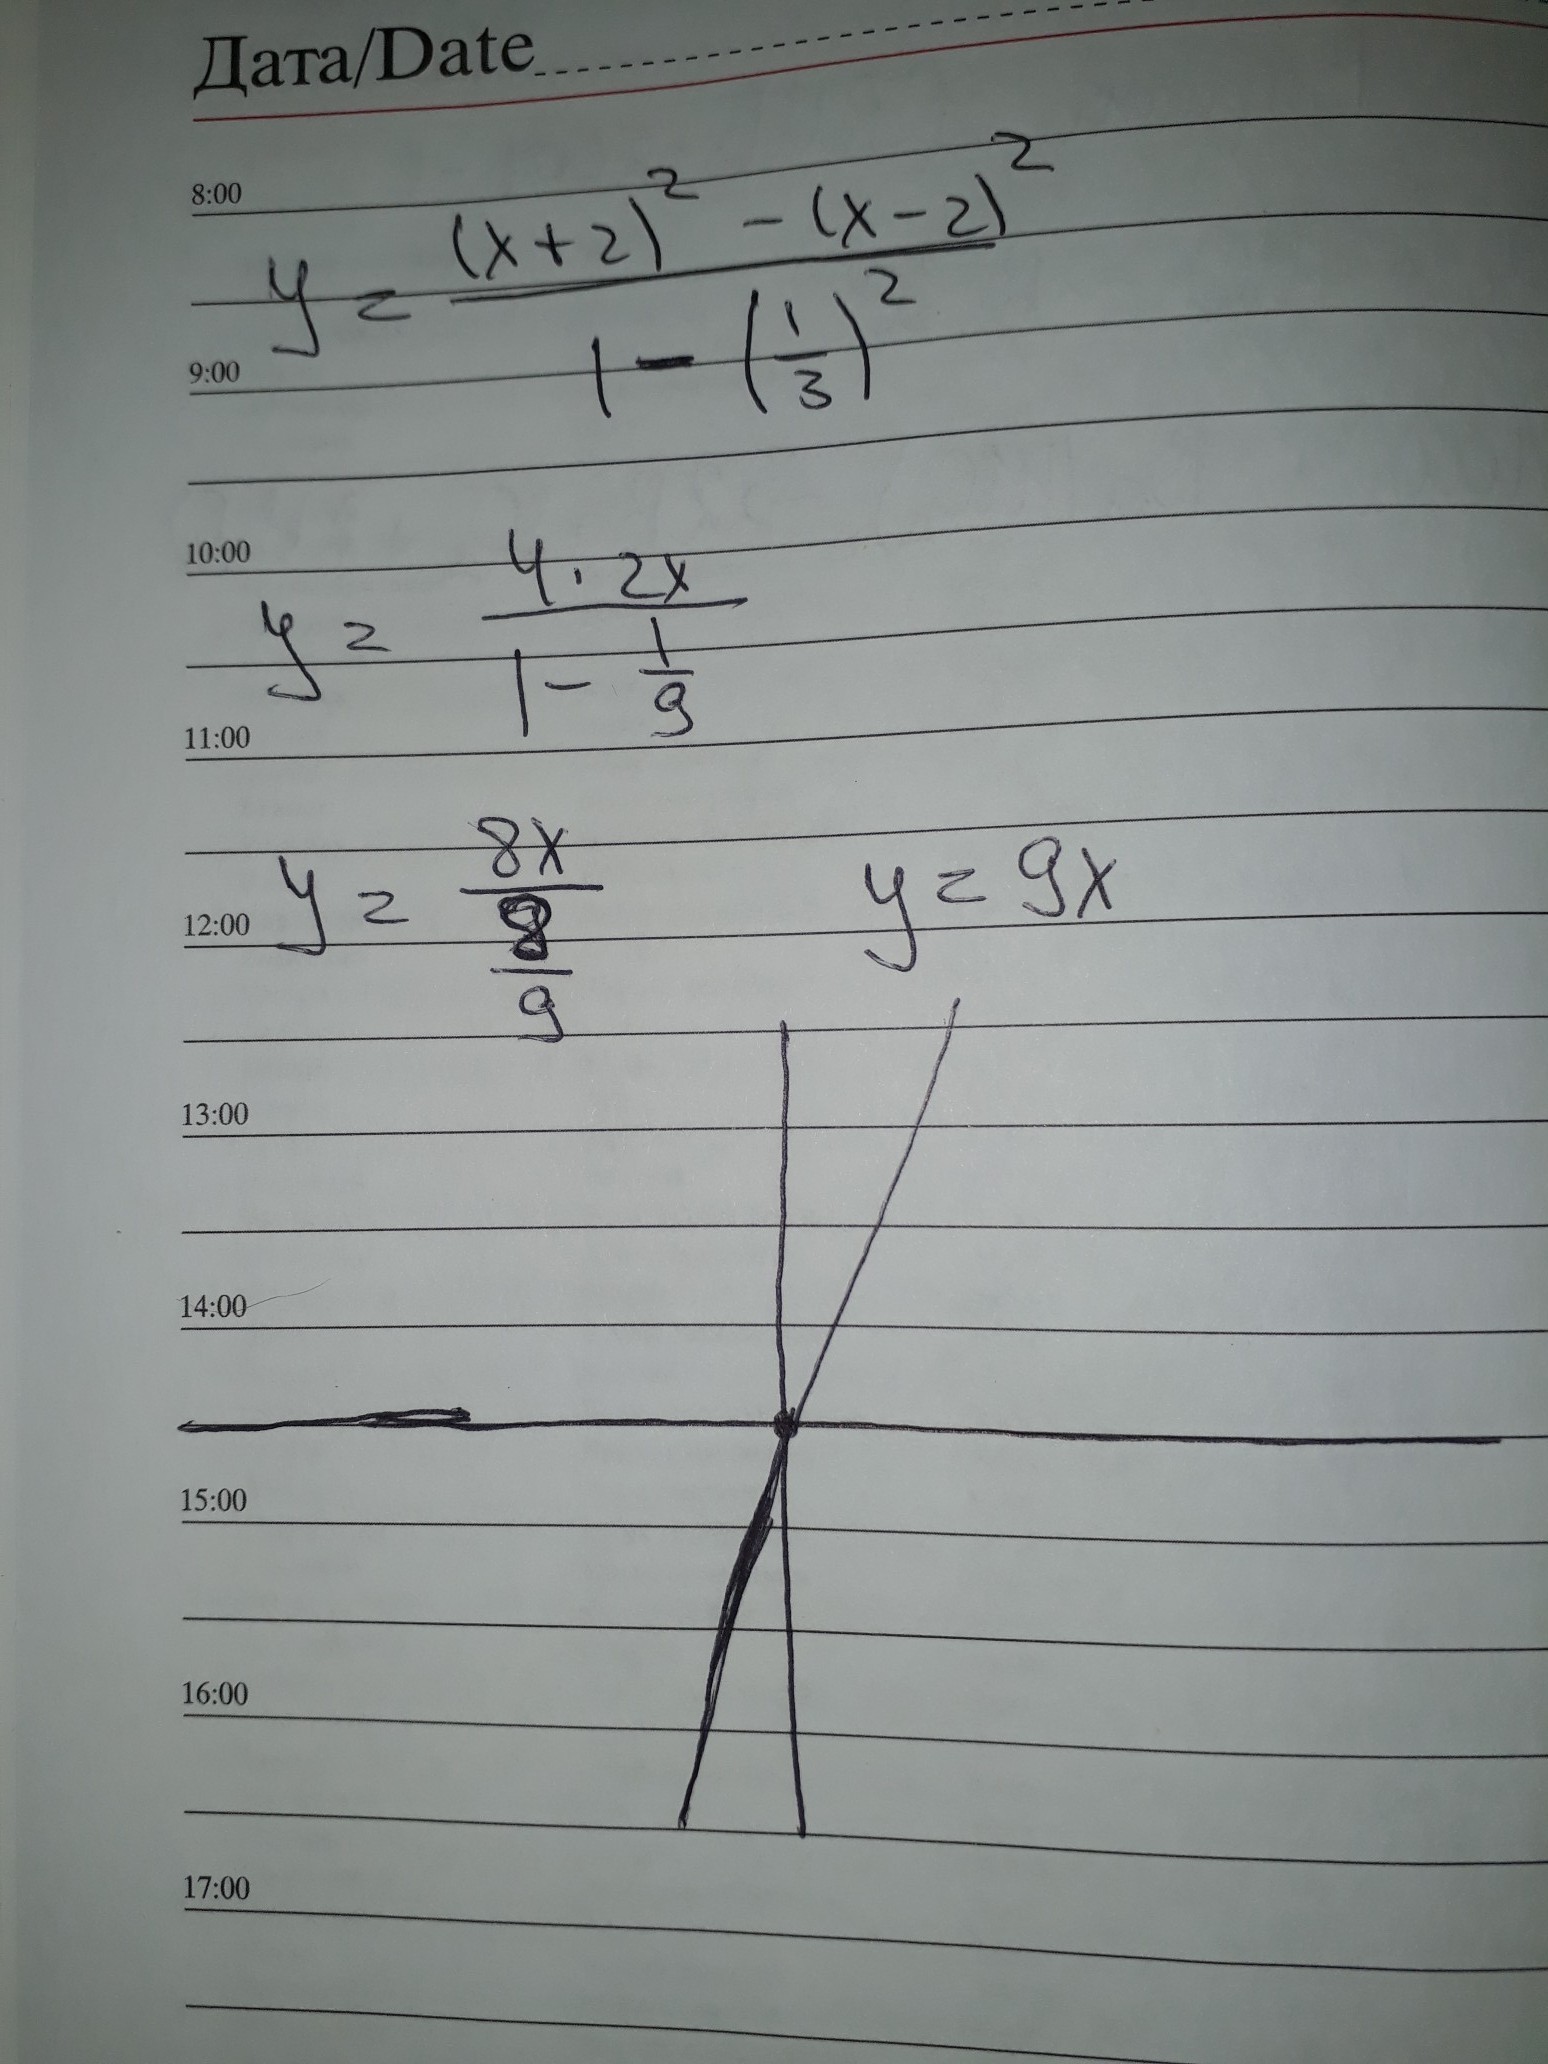 Дата/Date
8:00
y = \frac{(x+2)^2 - (x-2)^2}{1 - (\frac{1}{3})^2}
9:00
10:00
y = \frac{4 · 2x}{1 - \frac{1}{9}}
11:00
y = \frac{8x}{\frac{8}{9}} y = 9x
12:00
13:00
14:00
15:00
16:00
17:00